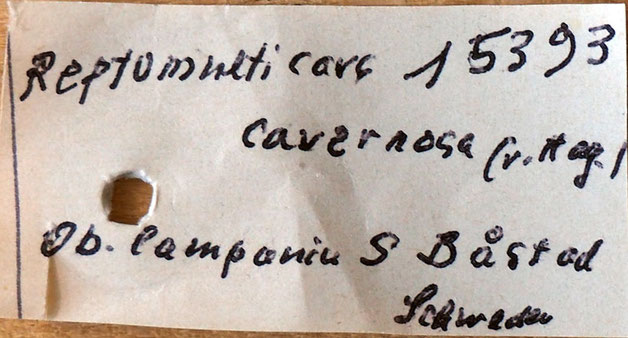 Reptomulticava 15393
cavernosa (v. Hag.)
Ob. Campaniu S Båstad
Schweden